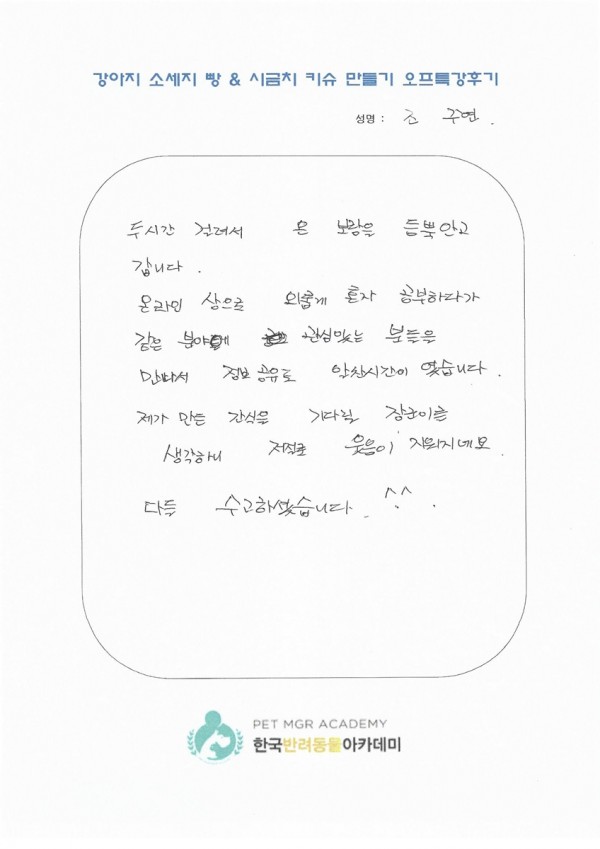 강아지 소세지 빵 & 시금치 키슈 만들기 오프특강후기
성명 : 조 주연 .
두시간 걸려서 온 보람을 듬뿍안고
갑니다 .
온라인 상으로 외롭게 혼자 공부하다가
같은 분야에 관심있는 분들을
만나서 정보공유로 알찬시간이 였습니다 .
제가 만든 간식을 기다릴 장군이를
생각하니 저절로 웃음이 지어지네요
다들 수고하셨습니다 . ^.^ .
PET MGR ACADEMY
한국반려동물아카데미